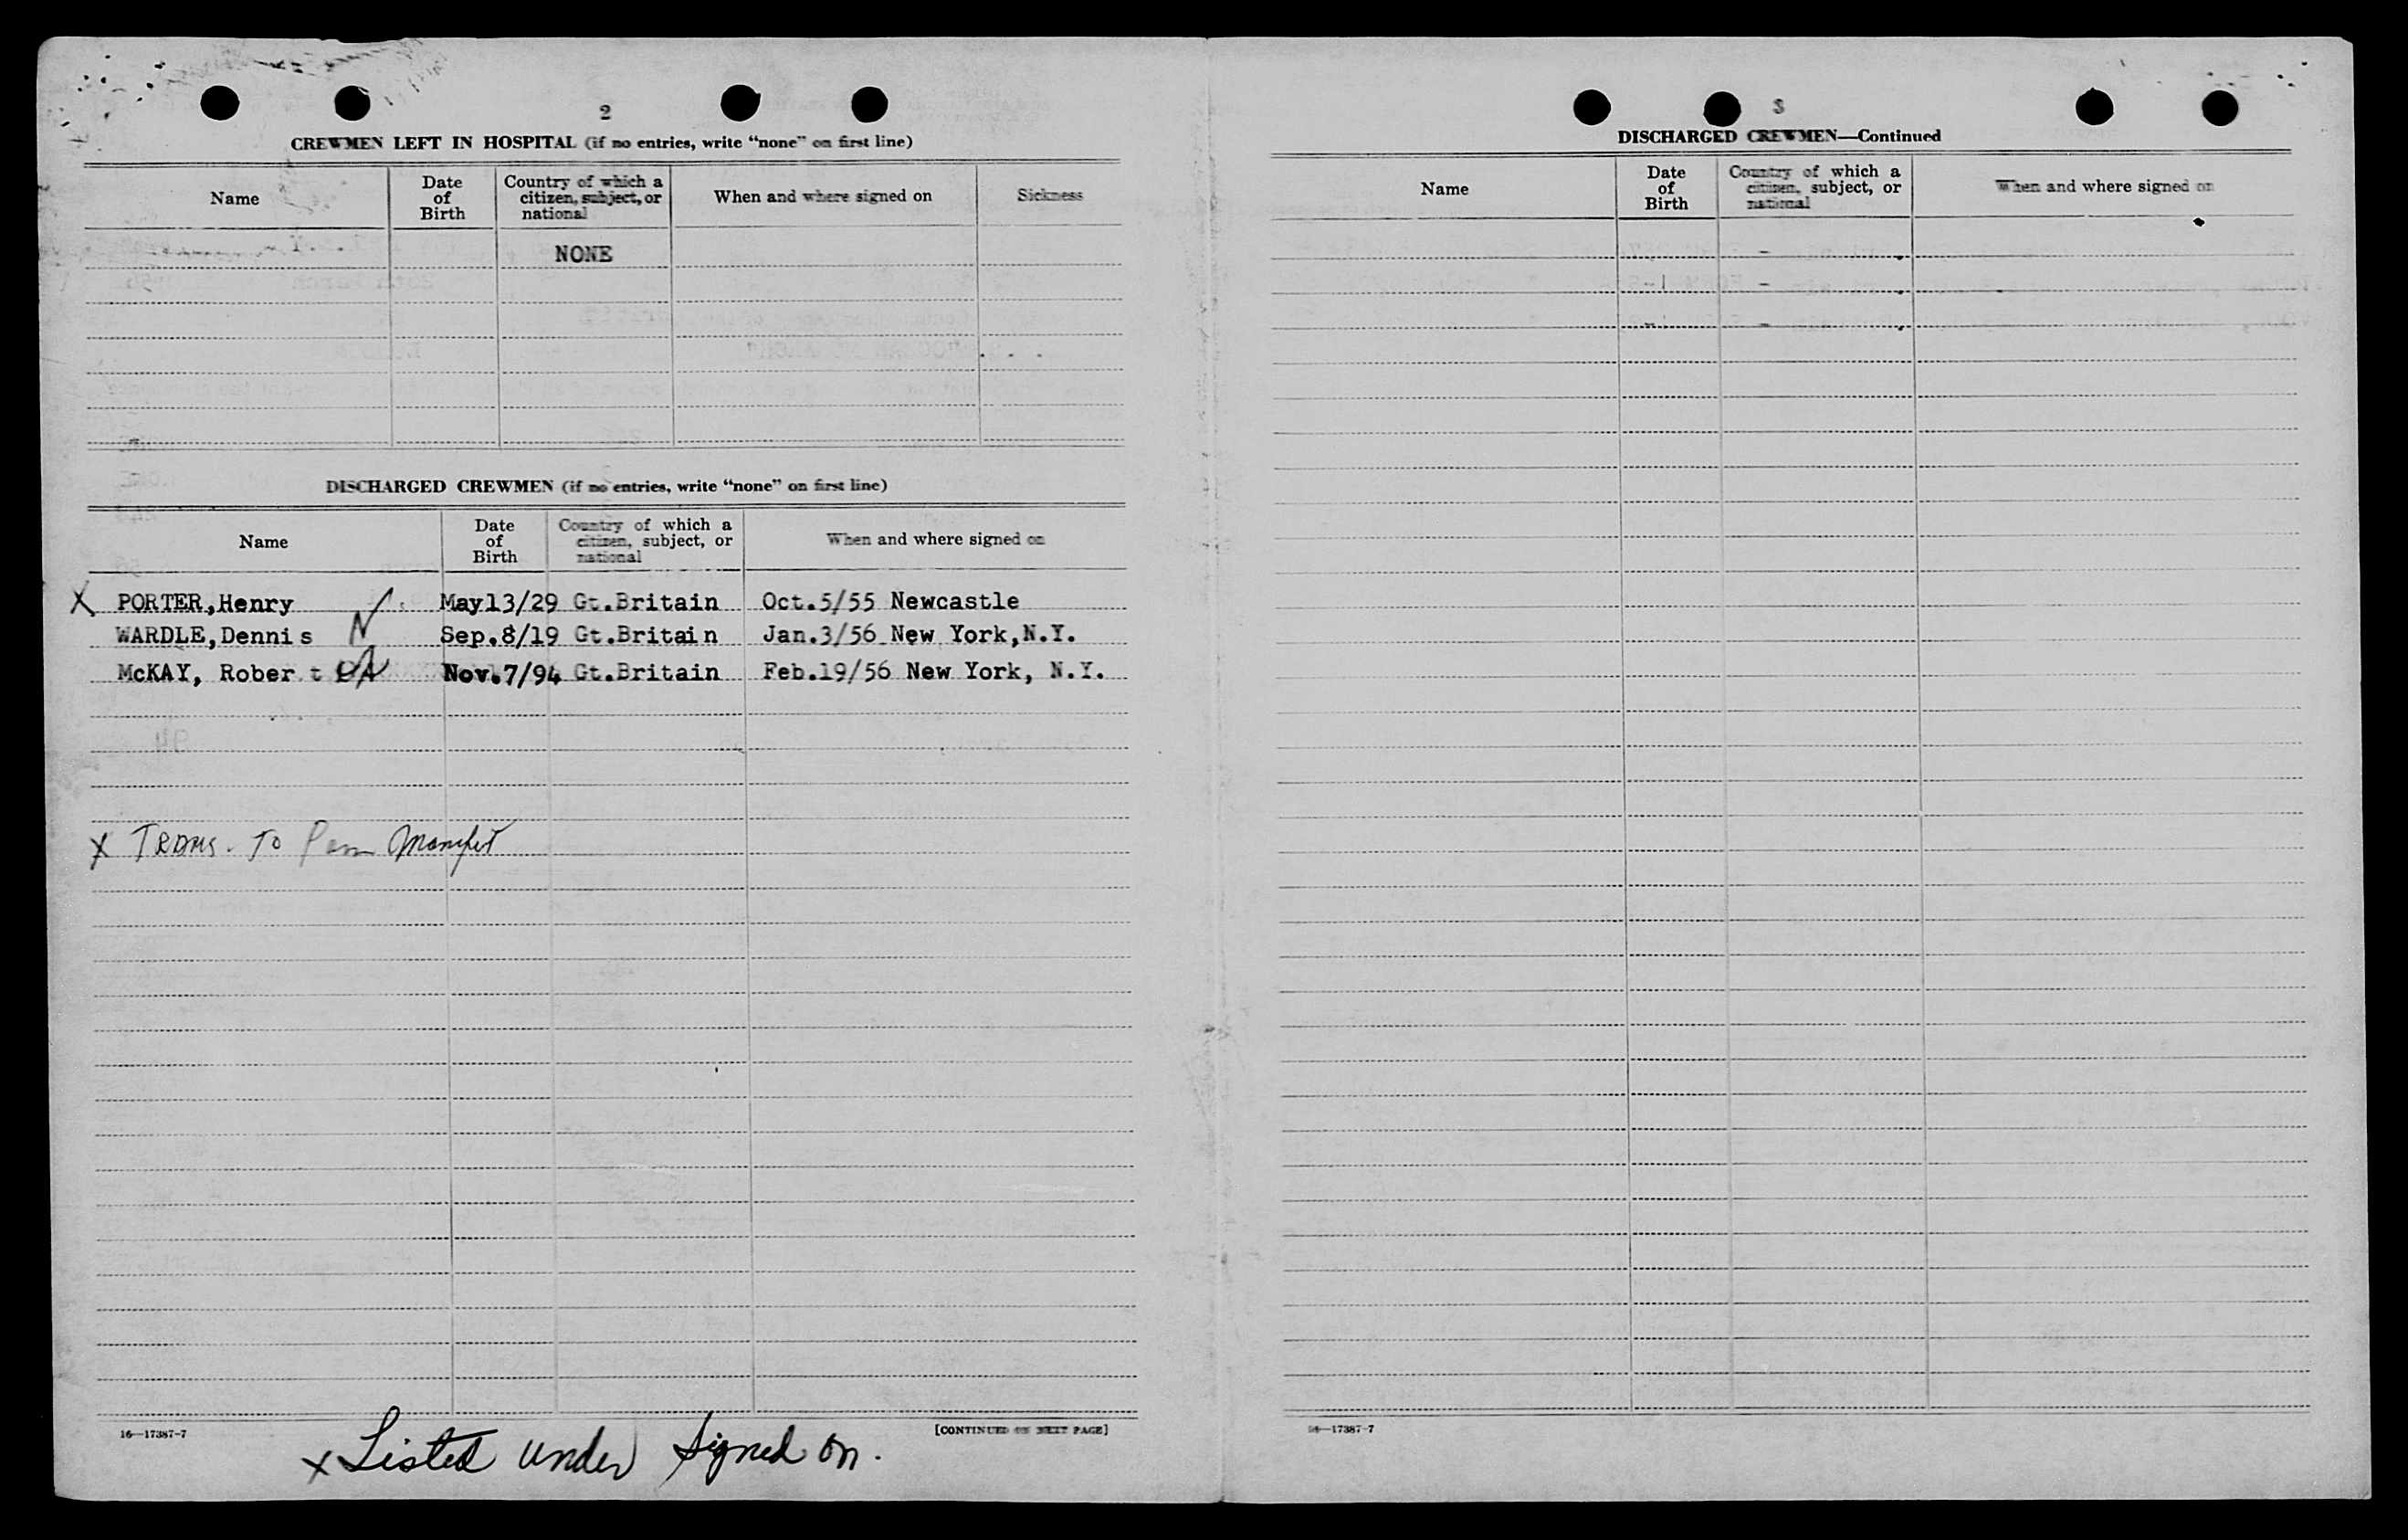 2
CREWMEN LEFT IN HOSPITAL (if no entries, write “none” on first line)
Name
Date of Birth
Country of which a citizen, subject, or national
When and where signed on
Sickness
NONE
DISCHARGED CREWMEN (if no entries, write “none” on first line)
Name
Date of Birth
Country of which a citizen, subject, or national
When and where signed on
X PORTER,Henry May13/29 Gt.Britain Oct.5/55 Newcastle
WARDLE,Dennis Sep.8/19 Gt.Britain Jan.3/56 New York,N.Y.
McKAY, Robert Nov.7/94 Gt.Britain Feb.19/56 New York, N.Y.
X Trans. To Manifest
16—17387-7
[CONTINUED ON NEXT PAGE]
x Listed under signed on.
3
DISCHARGED CREWMEN—Continued
Name
Date of Birth
Country of which a citizen, subject, or national
When and where signed on
16—17387-7